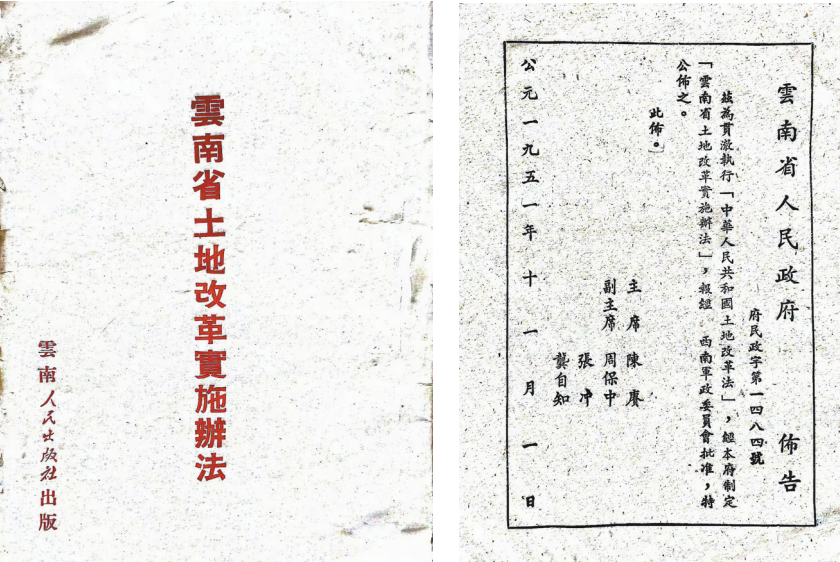 雲南省土地改革實施辦法
雲南人民出版社出版
雲南省人民政府 佈告
府民政字第一四八四號
茲為貫澈執行「中華人民共和國土地改革法」，經本府制定
「雲南省土地改革實施辦法」，報經 西南軍政委員會批准，特
公佈之。
此佈。
主席 陳賡
副主席 周保中
張冲
龔自知
公元一九五一年十一月一日